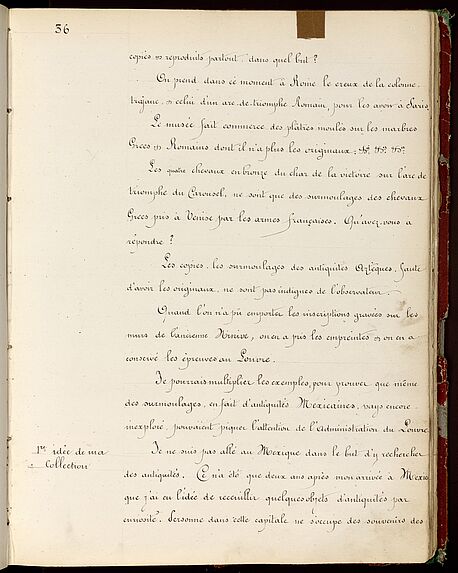 36
copiés et reproduits partout, dans quel but ?
On prend dans ce moment à Rome le creux de la colonne
trajane, et celui d'un arc-de-triomphe Romain, pour les avoir à Paris.
Le musée fait commerce des plâtres moulés sur les marbres
Grecs et Romains dont il n'a plus les originaux;
Les quatre chevaux en bronze du char de la victoire sur l'arc de
triomphe du Carousel, ne sont que des surmoulages des chevaux
Grecs pris à Venise par les armes françaises. Qu'avez-vous à
répondre ?
Les copies, les surmoulages des antiquités Aztèques, faute
d'avoir les originaux, ne sont pas indignes de l'observateur.
Quand l'on n'a pu emporter les inscriptions gravées sur les
murs de l'ancienne Ninive, on en a pris les empreintes et on en a
conservé les épreuves au Louvre.
Je pourrais multiplier les exemples, pour prouver que même
des surmoulages, en fait d'antiquités Mexicaines, pays encore
inexploré, pouvaient piquer l'attention de l'Administration du Louvre
1re idée de ma
Collection
Je ne suis pas allé au Mexique dans le but d'y rechercher
des antiquités. Ce n'a été que deux ans après mon arrivée à Mexico
que j'ai eu l'idée de recueillir quelques objets d'antiquités par
curiosité. Personne dans cette capitale ne s'occupe des souvenirs des